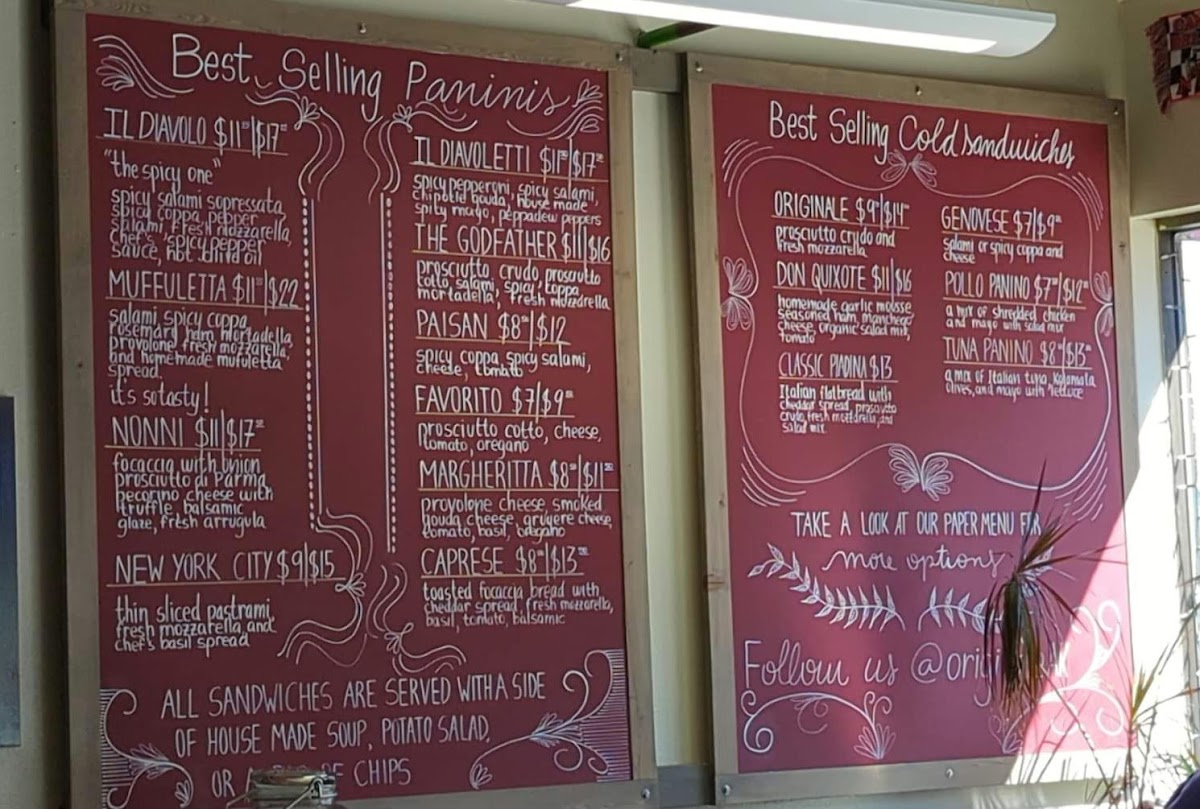 Best Selling Paninis
IL DIAVOLO $11|$17
"the spicy one"
spicy salami sopressata,
spicy coppa, pepper
salami, fresh mozzarella,
chef's spicy pepper
sauce, hot olive oil
MUFFULETTA $11|$22
salami, spicy coppa,
rosemary ham, mortadella
provolone, fresh mozzarella,
and homemade mufuletta
spread
it's so tasty!
NONNI $11|$17
focaccia with onion
prosciutto di Parma,
pecorino cheese with
truffle, balsamic
glaze, fresh arrugula
NEW YORK CITY $9|$15
thin sliced pastrami,
fresh mozzarella, and
chef's basil spread
IL DIAVOLETTI $11|$17
spicy pepperoni, spicy salami,
chipotle gouda, house made
spicy mayo, peppadew peppers
THE GODFATHER $11|$16
prosciutto crudo, prosciutto
cotto, salami, spicy coppa
mortadella, fresh mozzarella
PAISAN $8|$12
spicy coppa, spicy salami,
cheese, tomato
FAVORITO $7|$9
prosciutto cotto, cheese,
tomato, oregano
MARGHERITTA $8|$11
provolone cheese, smoked
gouda cheese, gruyere cheese,
tomato, basil, oregano
CAPRESE $8|$13
toasted focaccia bread with
cheddar spread, fresh mozzarella,
basil, tomato, balsamic
ALL SANDWICHES ARE SERVED WITH A SIDE
OF HOUSE MADE SOUP, POTATO SALAD,
OR A OF CHIPS
Best Selling Cold Sandwiches
ORIGINALE $9|$14
prosciutto crudo and
fresh mozzarella
DON QUIXOTE $11|$16
homemade garlic mousse
seasoned ham, manchego
cheese, organic salad mix,
tomato
CLASSIC PIADINA $13
Italian flatbread with
cheddar spread, prosciutto
crudo, fresh mozzarella, and
salad mix
GENOVESE $7|$9
salami or spicy coppa and
cheese
POLLO PANINO $7|$12
a mix of shredded chicken
and mayo with salad mix
TUNA PANINO $8|$13
a mix of Italian tuna, Kalamata
olives, and mayo with lettuce
TAKE A LOOK AT OUR PAPER MENU FOR
more options
Follow us